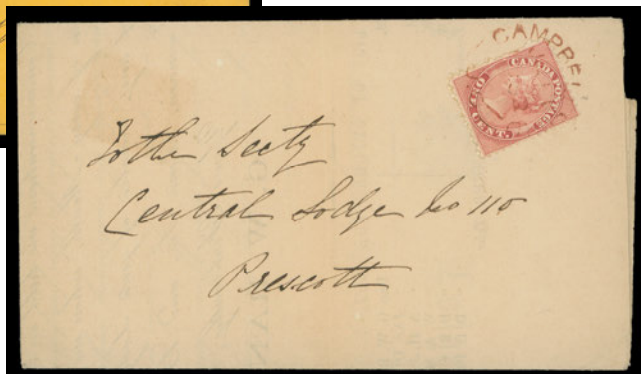 CAMPBEL
CANADA POSTAGE
ONE CENT.
To the Secty
Central Lodge No 110
Prescott